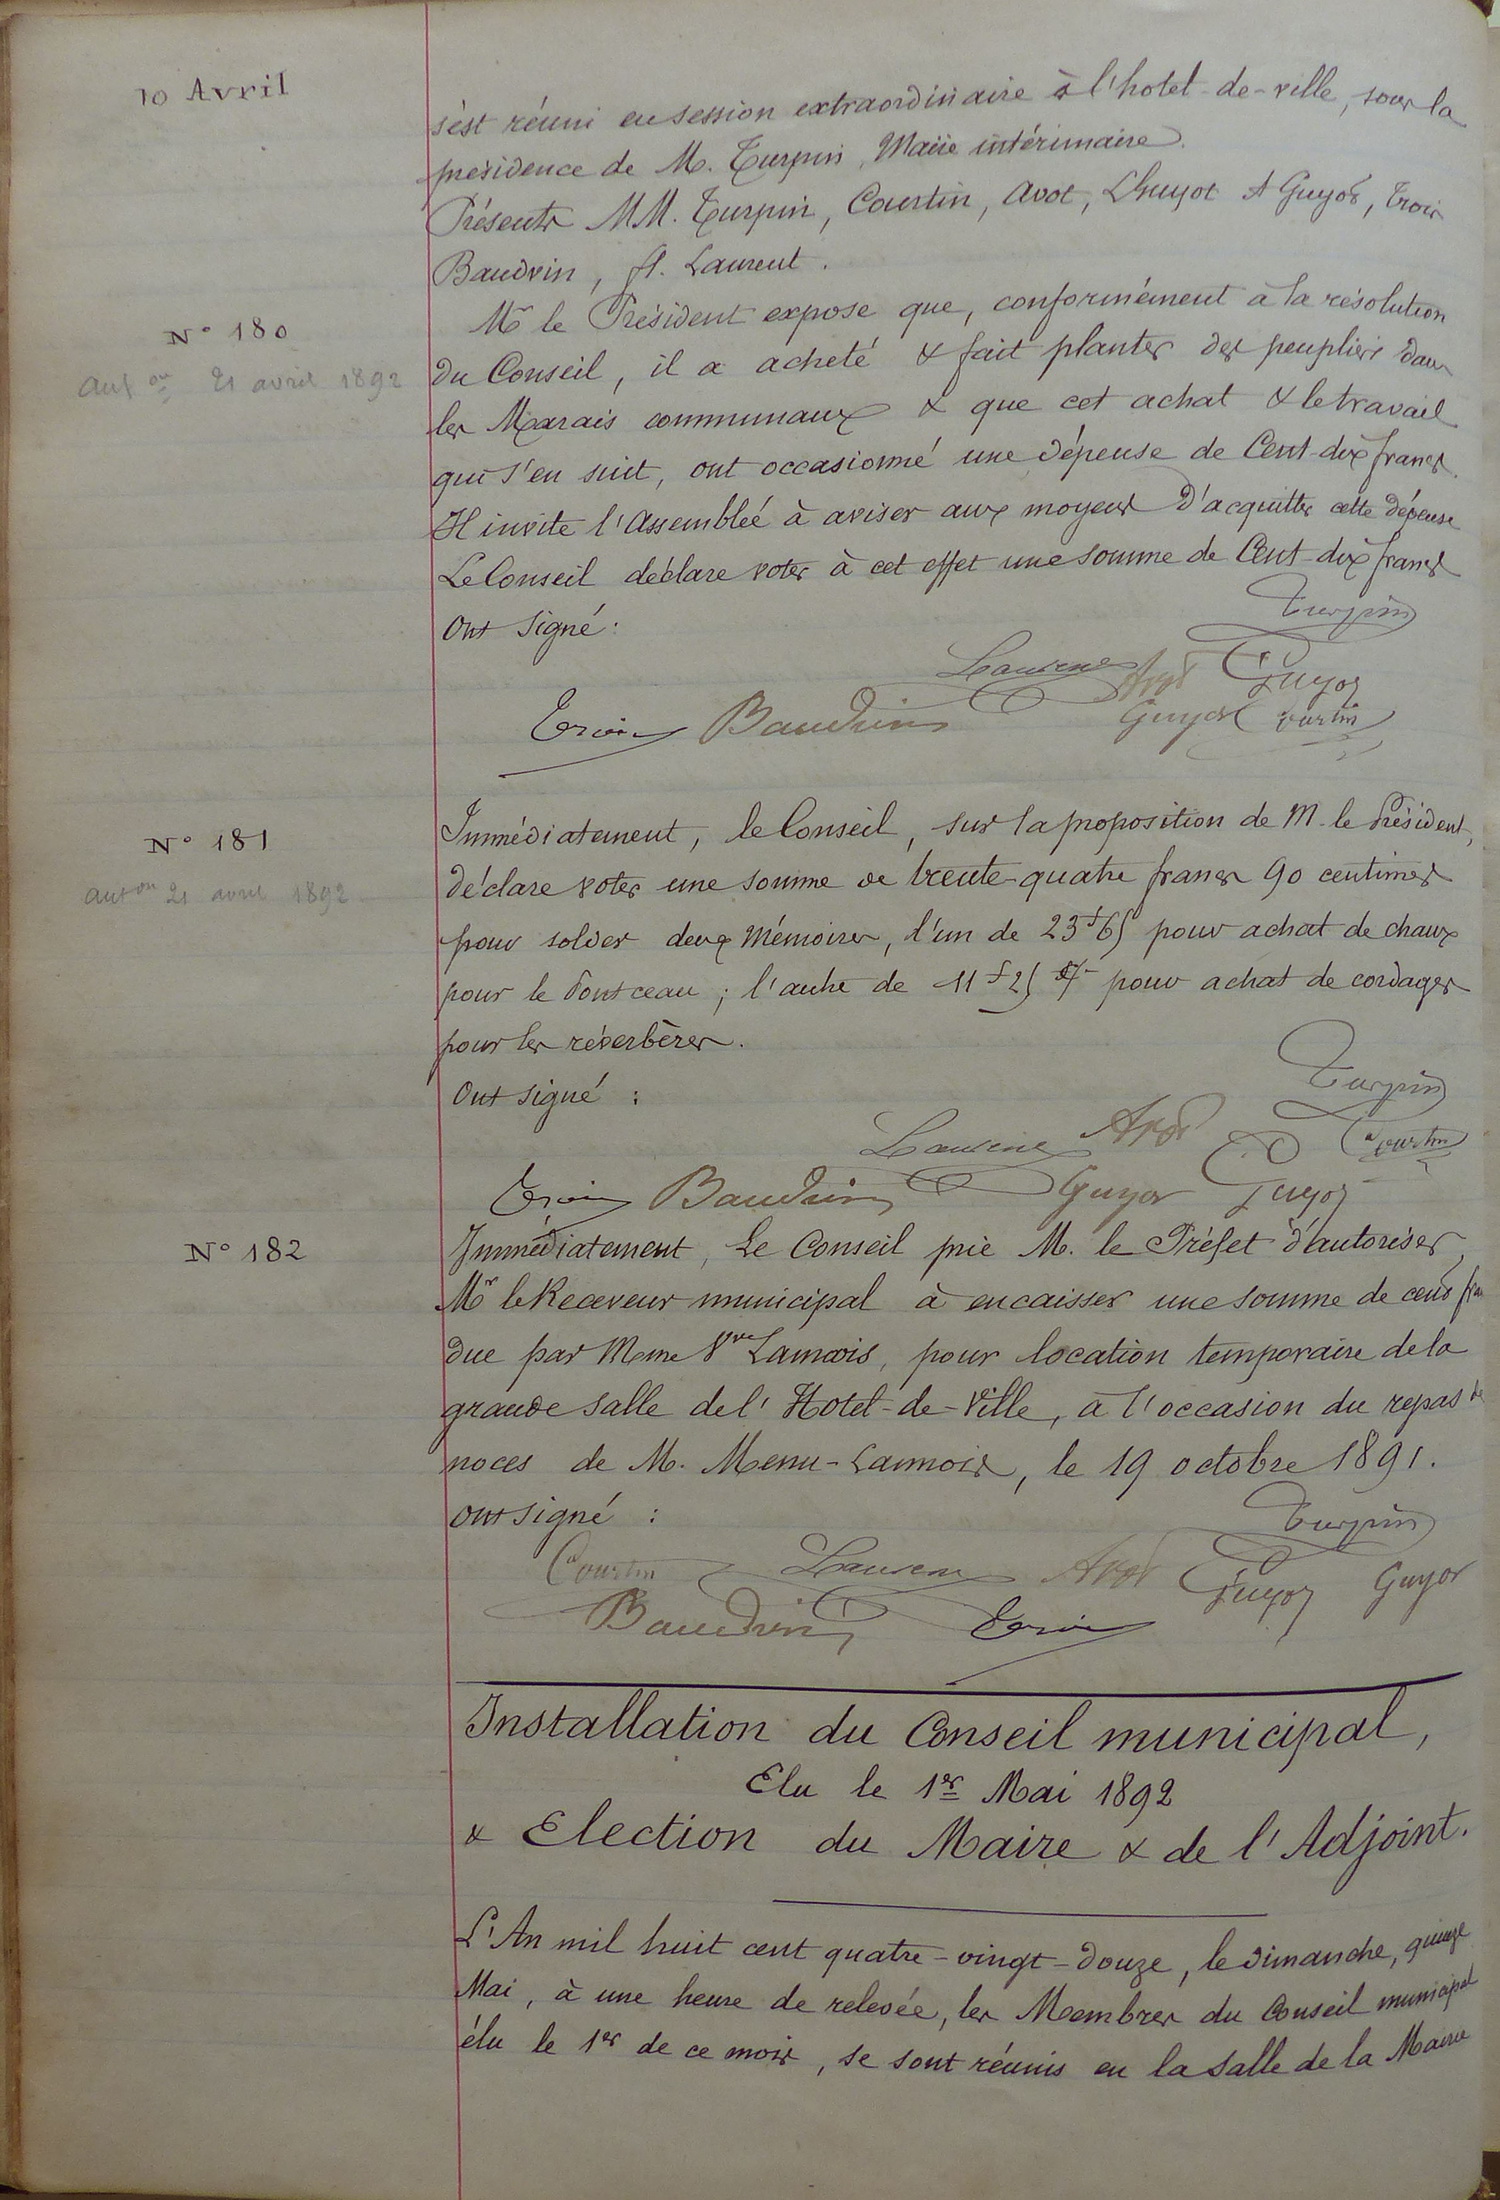 10 Avril
s'est réuni en session extraordinaire à l'hotel-de-ville, sous la
présidence de M. Turpin, Maire intérimaire.
Présents MM. Turpin, Courtin, Avot, Lhuyot A Guyot, Troin
Baudrin, A. Laurent.
N° 180
Mr le Président expose que, conformément à la résolution
aut on 21 avril 1892
du Conseil, il a acheté & fait planter des peupliers dans
les Marais communaux & que cet achat & le travail
qui s'en suit, ont occasionné une dépense de Cent-dix francs.
Il invite l'Assembleé à aviser aux moyens d'acquitter cette dépense
Le Conseil déclare voter à cet effet une somme de Cent-dix francs
Ont signé :
Turpin
Laurent Avot Guyot
Troin Baudrin Guyot Courtin
N° 181
Immédiatement, le Conseil, sur la proposition de M. le Président,
aut on 21 avril 1892
déclare voter une somme de trente-quatre francs 90 centimes
pour solder deux Mémoires, l'un de 23 f 65 pour achat de chaux
pour le Pontceau ; l'autre de 11 f 25 pour achat de cordages
pour les réverbères.
Ont signé :
Turpin
Laurent Avot Courtin
Troin Baudrin Guyot Guyot
N° 182
Immédiatement, Le Conseil prie M. le Préfet d'autoriser
Mr le Receveur municipal à encaisser une somme de cent fra
due par Mme Vve Lamois, pour location temporaire de la
grande salle de l'Hotel-de-Ville, à l'occasion du repas de
noces de M. Menu-Lannois, le 19 octobre 1891.
Ont signé :
Turpin
Courtin Laurent Avot Guyot Guyot
Baudrin Troin
Installation du Conseil municipal,
Elu le 1er Mai 1892
& Election du Maire & de l'Adjoint.
L'An mil huit cent quatre-vingt-douze, le dimanche, quinze
Mai, à une heure de relevée, les Membres du Conseil municipal
élu le 1er de ce mois, se sont réunis en la salle de la Mairie